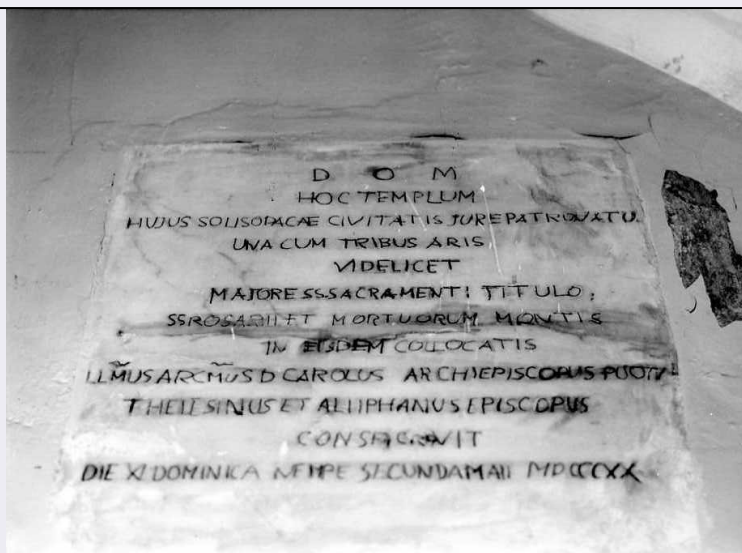 D O M
HOC TEMPLUM
HUJUS SOLISOPACAE CIVITATIS JURE PATRONATU
UNA CUM TRIBUS ARIS
VIDELICET
MAJORE SS.SACRAMENTI TITULO;
SSROSARII ET MORTUORUM MONTIS
IN EISDEM COLLOCATIS
ILLM̃US ARCM̃US D CAROLUS ARCHIEPISCOPUS
THELESINUS ET ALIIPHANUS EPISCOPUS
CONSACRAVIT
DIE XI DOMINICA NEMPE SECUNDA MAII MDCCCXX